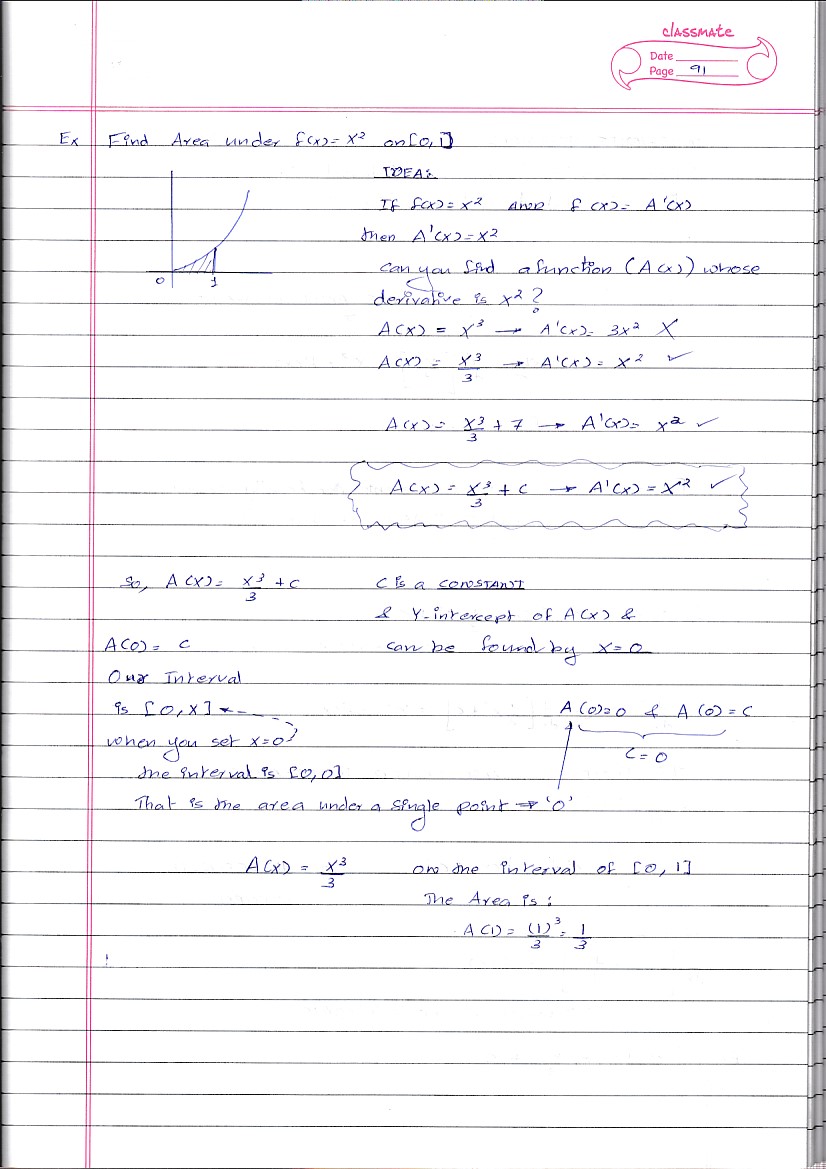 classmate
Date
Page 91
Ex Find Area under f(x)= x² on [0,1]
IDEA:
If f(x)= x² AND f(x)= A'(x)
then A'(x)= x²
can you find a function (A(x)) whose
derivative is x² ?
A(x) = x³ → A'(x)= 3x² X
A(x) = x³/3 → A'(x)= x² ✓
A(x)= x³/3 + 7 → A'(x)= x² ✓
A(x) = x³/3 + C → A'(x) = x² ✓
0 1
So, A(x)= x³/3 + C
C is a CONSTANT
& Y-intercept of A(x) &
can be found by x=0
A(0)= C
Our Interval
is [0,x]
when you set x=0
the interval is [0,0]
A(0)=0 & A(0)=C
C=0
That is the area under a single point → '0'
A(x) = x³/3 on the interval of [0,1]
The Area is :
A(1)= (1)³/3 = 1/3